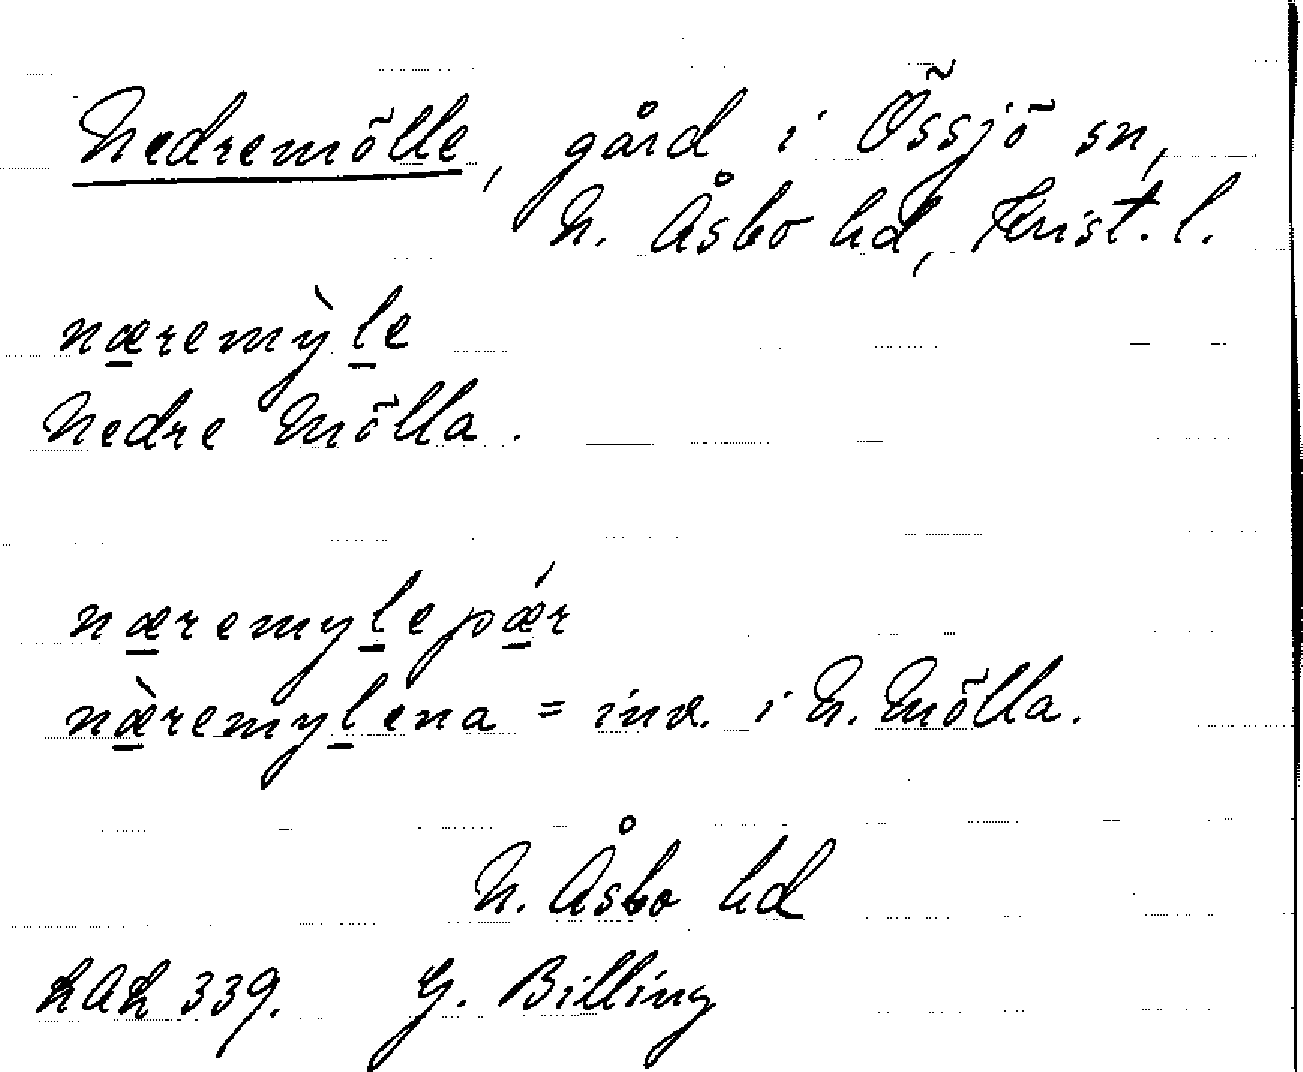 Nedremölle, gård i Össjö sn,
N. Åsbo hd, Krist. l.
næremỳle
Nedre Mölla.
næremylepǽr
næ̀remylena = inv. i N. Mölla.
N. Åsbo hd
LAL 339. G. Billing